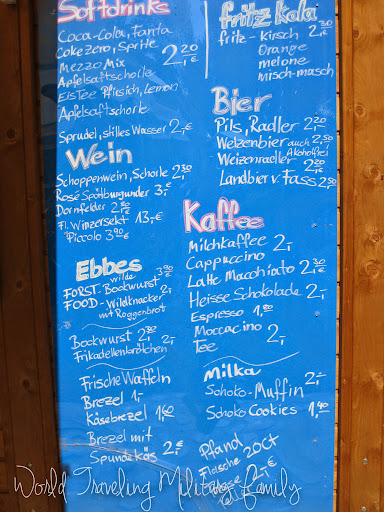 Softdrinks
Coca-Cola, Fanta
Coke Zero, Sprite
Mezzo Mix 2,20 €
Apfelsaftschorle
EisTee Pfirsich, Lemon
Apfelsaftschorle 2,- €
Sprudel, stilles Wasser 2,- €
Wein
Schoppenwein, Schorle 2,30
Rosé Spätburgunder 3,- €
Dornfelder 2,80 €
Fl. Winzersekt 13,- €
Piccolo 3,90 €
Ebbes
wilde
FORST-Bockwurst 3,90
FOOD-Wildknacker
mit Roggenbrot
Bockwurst 2,80
Frikadellenbrötchen
Frische Waffeln
Brezel 1,-
Käsebrezel 1,60
Brezel mit
Spundekäs 2,- €
fritz Kola
fritz-kirsch 2,30 €
Orange
melone
misch-masch
Bier
Pils, Radler 2,20
Weizenbier auch 2,50
Alkoholfrei
Weizenradler 2,20 €
Landbier v. Fass 2,50
Kaffee
Milchkaffee 2,-
Cappuccino
Latte Macchiato 2,30
Heisse Schokolade 2,-
Espresso 1,80
Moccacino
Tee 2,-
Milka
Schoko-Muffin 2,-
Schoko Cookies 1,40
Pfand 20Ct
Flasche 2,- €
World Traveling Military Family